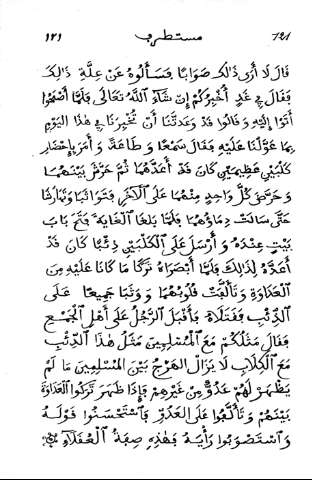 ١٢١ مستطرف 121
قَالَ لَا أَرَى ذَالِكَ صَوَابًا فَسَأَلُوهُ عَنْ عِلَّةِ ذَالِكَ
فَقَالَ فِي غَدٍ أُخْبِرُكُمْ إِنْ شَاءَ اللَّهُ تَعَالَى فَلَمَّا أَصْبَحُوا
أَتَوْا إِلَيْهِ وَقَالُوا قَدْ وَعَدتَّنَا أَنْ تُخْبِرَنَا فِي هَذَا الْيَوْمِ
بِمَا عَوَّلْنَا عَلَيْهِ فَقَالَ سَمْعًا وَطَاعَةً وَأَمَرَ بِإِحْضَارِ
كَلْبَيْنِ عَظِيمَيْنِ كَانَ قَدْ أَعَدَّهُمَا ثُمَّ حَرَّشَ بَيْنَهُمَا
وَحَرَّضَ كُلَّ وَاحِدٍ مِنْهُمَا عَلَى الْآخَرِ فَتَوَاثَبَا وَتَهَارَشَا
حَتَّى سَالَتْ دِمَاؤُهُمَا فَلَمَّا بَلَغَا الْغَايَةَ فَتَحَ بَابَ
بَيْتٍ عِنْدَهُ وَأَرْسَلَ عَلَى الْكَلْبَيْنِ ذِئْبًا كَانَ قَدْ
أَعَدَّهُ لِذَالِكَ فَلَمَّا أَبْصَرَاهُ تَرَكَا مَا كَانَا عَلَيْهِ مِنَ
الْعَدَاوَةِ وَتَأَلَّفَتْ قُلُوبُهُمَا وَوَثَبَا جَمِيعًا عَلَى
الذِّئْبِ فَقَتَلَاهُ فَأَقْبَلَ الرَّجُلُ عَلَى أَهْلِ الْجَمْعِ
فَقَالَ مَثَلُكُمْ مَعَ الْمُسْلِمِينَ مَثَلُ هَذَا الذِّئْبِ
مَعَ الْكِلَابِ لَا يَزَالُ الْهَرْجُ بَيْنَ الْمُسْلِمِينَ مَا لَمْ
يَظْهَرْ لَهُمْ عَدُوٌّ مِنْ غَيْرِهِمْ فَإِذَا ظَهَرَ تَرَكُوا الْعَدَاوَةَ
بَيْنَهُمْ وَتَأَلَّبُوا عَلَى الْعَدُوِّ فَاسْتَحْسَنُوا قَوْلَهُ
وَاسْتَصْوَبُوا رَأْيَهُ فَهَذِهِ صِفَةُ الْعُقَلَاءِ